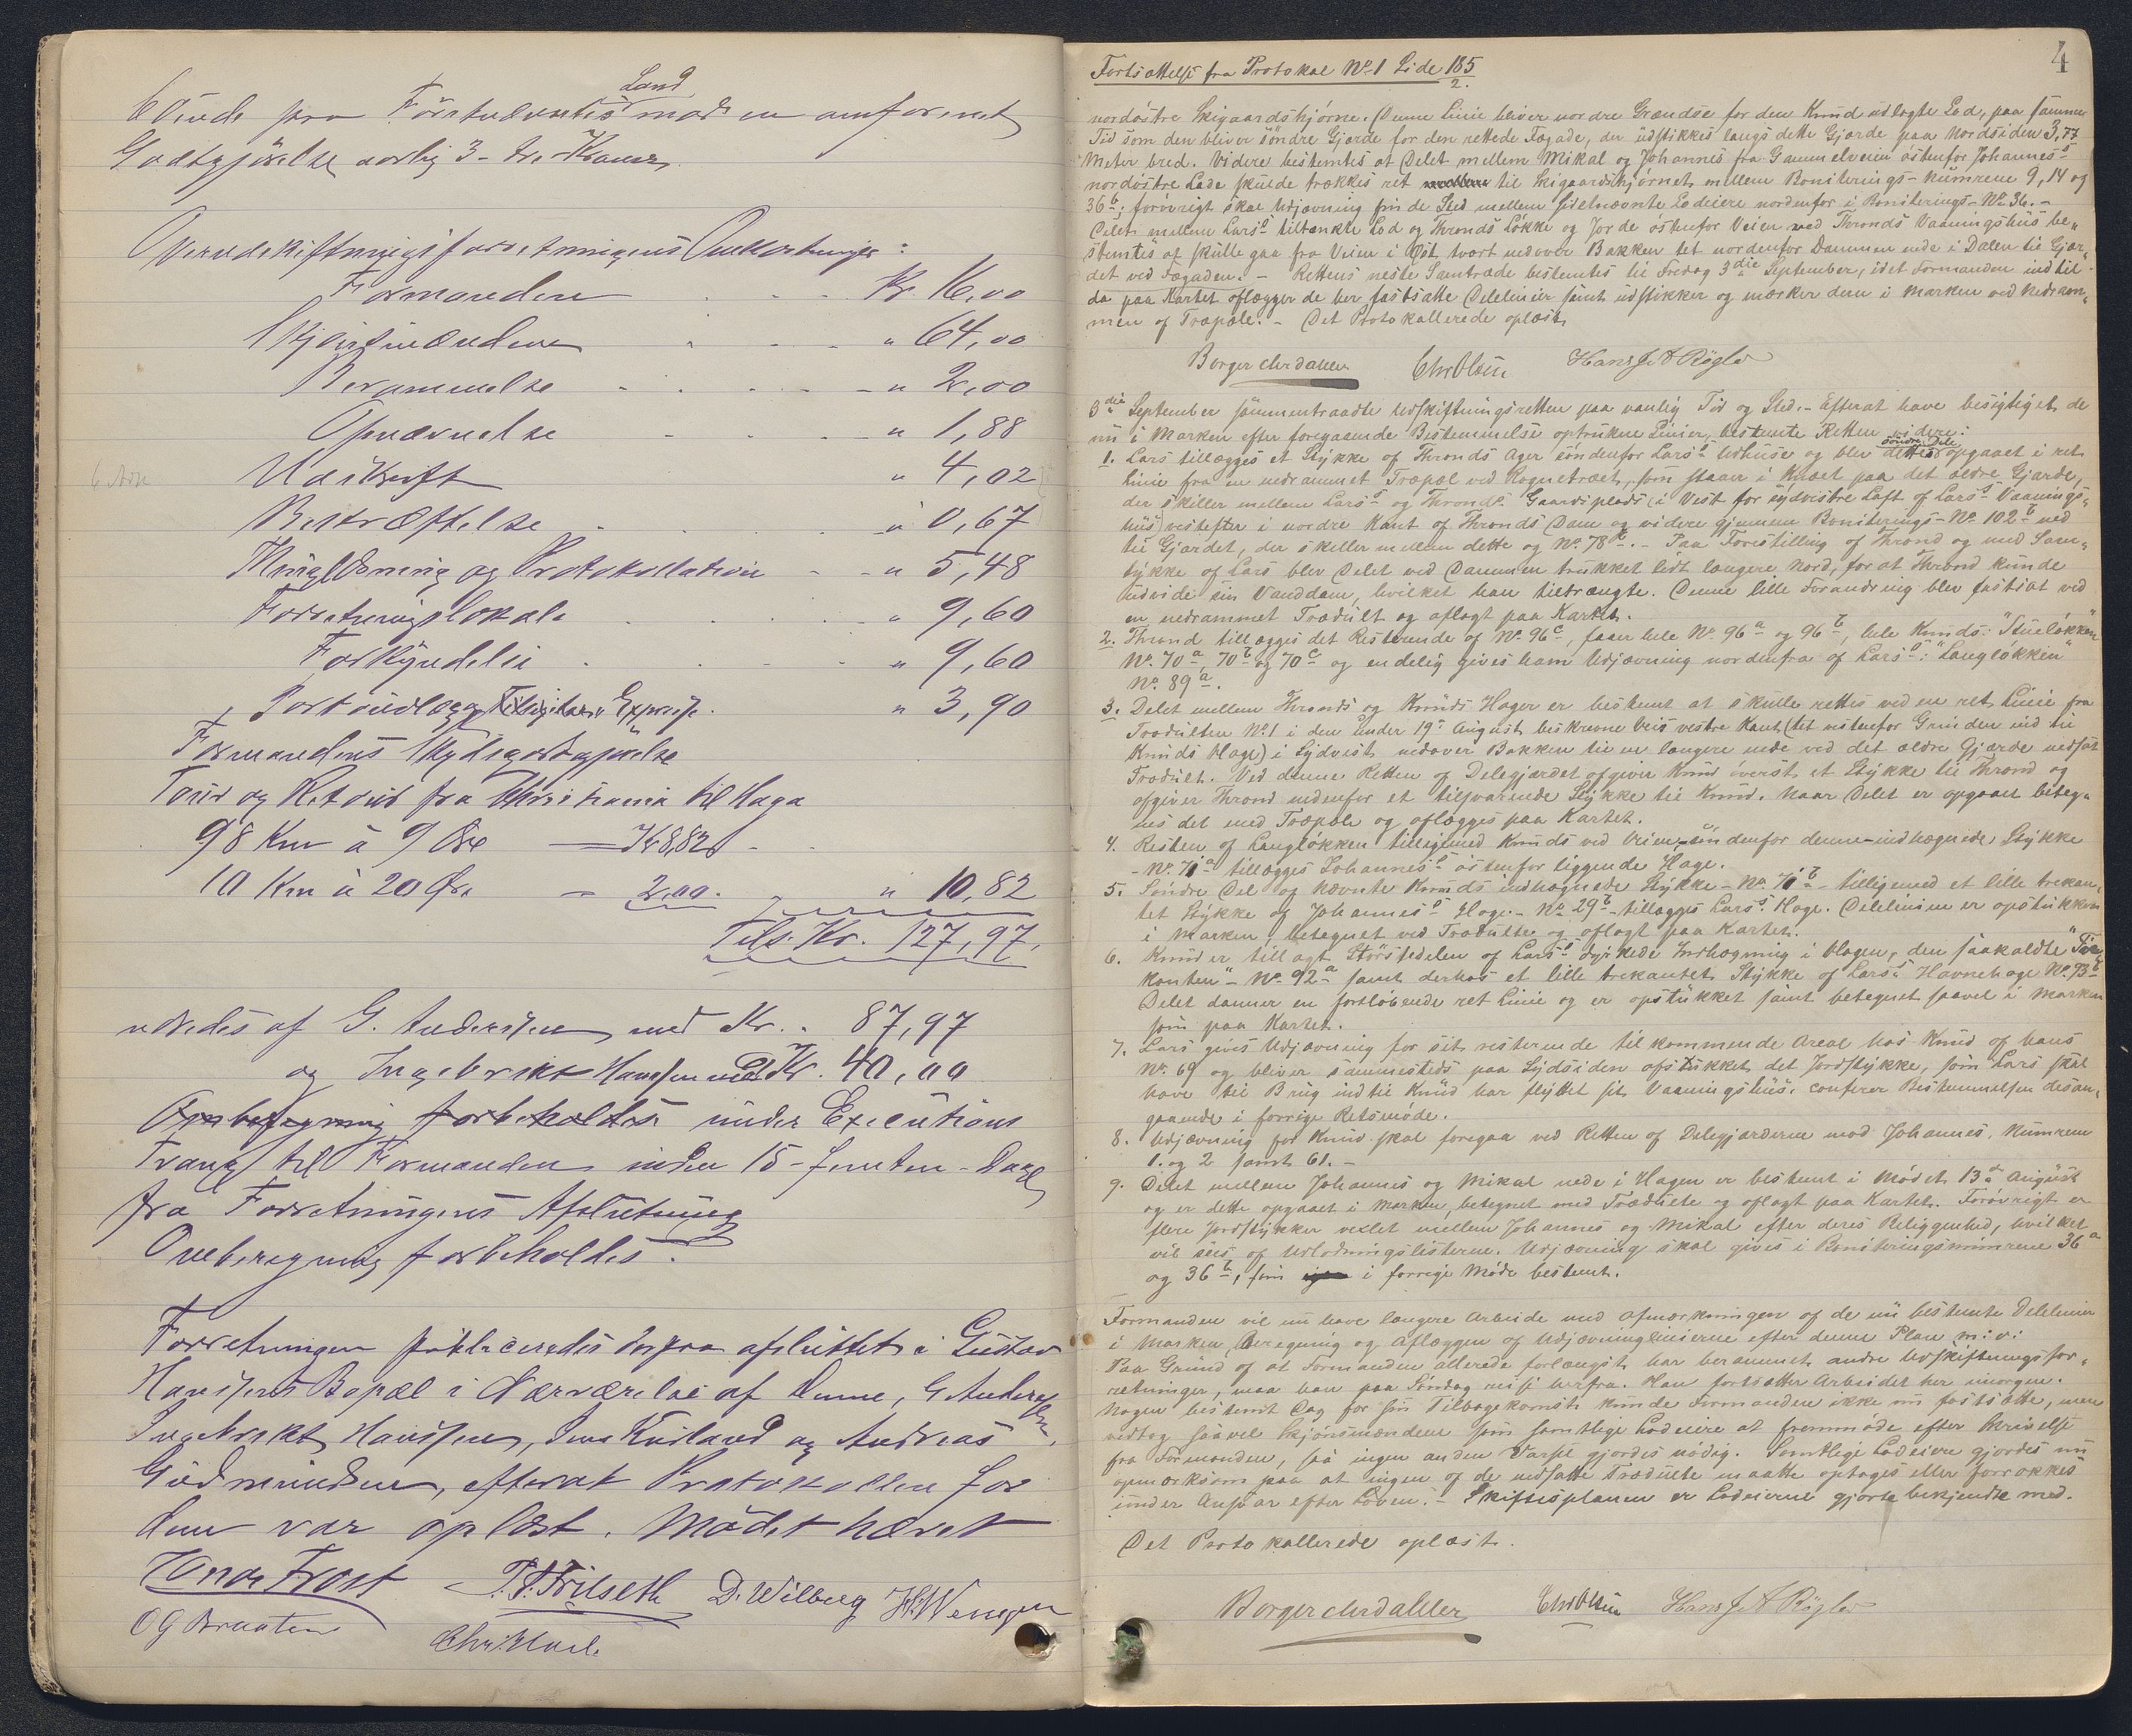 Land
pro Förstnævntes mod en omforenet
Godtgjörelse aarlig 3 - tre Kroner.
Overudskiftningsforretningens Omkostninger:
Formanden . . . Kr. 16,00
Skjönsmændene . . . " 64,00
Berammelse . . . " 2,00
Opnævnelse . . . " 1,88
Udskrift " 4,02
Bekræftelse . . . " 0,67
Thinglæsning og Protokollation - - " 5,48
Forretningslokale . . . " 9,60
Forkyndelse . . . " 9,60
Postudlæg " 3,90
Formandens Skydsgodtgjörelse
Tour og Retour fra Christiania til Haga
98 Km à 9 Öre = Kr 8,82
10 Km à 20 Öre = 2,00 " 10,82
Tils. Kr. 127,97.
udredes af G. Andersen med Kr. 87,97
og Ingebrikt Hanssen med Kr. 40,00
Omberegning forbeholdes under Executions
Tvang til Formanden inden 15 - femten - Dage
fra Forretningens Afslutning
Omberegning forbeholdes.
Forretningen publiceredes derpaa afsluttet i Gustav
Hansens Bopæl i Nærværelse af denne, G. Andersen,
Ingebrikt Hanssen, og Andreas
Gudmundsen, efterat Protokollen for
dem var oplæst. Mödet hævet
Frost P. Frilseth D. Wilberg
O G Braaten
4
Fortsættelse fra Protokol No 1 Side 185/2.
nordöstre Skigaardshjörne. Denne Linie bliver nordre Grændse for den Knud udlagte Lod, paa samme
Tid som den bliver söndre Gjærde for den rettede Fægade, der udstikkes langs dette Gjærde paa Nordsiden 3,77
Meter bred. Videre bestemtes at Delet mellem Mikal og Johannes fra Gammelveien östenfor Johannes's
nordöstre Lade skulde trækkes ret til Skigaardshjörnet mellem Boniterings-Numrene 9, 14 og
36 b; forövrigt skal Udjævning finde Sted mellem sidstnævnte Lodeiere nordenfor i Boniterings-No 36. -
Delet mellem Lars's tiltænkte Lod og Thronds Lökke og Jorde östenfor Veien ved Thronds Vaaningshus be-
stemtes at skulle gaa fra Veien i Öst, tvært nedover Bakken tet nordenfor Dammen nede i Dalen til Gjær-
det ved Fægaden. - Rettens neste Samtræde bestemtes til Fredag 3die September, idet Formanden indtil
da paa Kartet aflægger de her fastsatte Delelinier samt udstikker og mærker dem i Marken ved Nedram-
men af Træpæle. - Det Protokollerede oplæst.
Borger Chrdahler Chr Olsen Hans J A Rögler
3die September sammentraadte Udskiftningsretten paa vanlig Tid og Sted. - Efterat have besigtiget de
nu i Marken efter foregaaende Bestemmelse optrukne Linier, bestemte Retten videre:
1. Lars tillægges et Stykke af Thronds Ager söndenfor Lars's Udhuse og blev dettes söndre Dele opgaaet i ret
Linie fra en nedrammet Træpæl ved Rognetræet, som staar i Knæet paa det ældre Gjærde,
der skiller mellem Lars's og Thronds Gaardsplads (i Vest for sydvestre Loft af Lars's Vaanings-
hus) vestefter i nordre Kant af Thronds Dam og videre gjennem Boniterings-No 102 b ned
til Gjærdet, der skiller mellem dette og No 78 b. - Paa Forestilling af Thrond og med Sam-
tykke af Lars blev Delet ved Dammen trukket lidt længere Nord, for at Thrond kunde
udvide sin Vanddam, hvilket han tiltrængte. Denne lille Forandring blev fastsat ved
en nedrammet Trædult og aflagt paa Kartet.
2. Thrond tillægges det Resterende af No 96 c, faaer hele No 96 a og 96 b, hele Knuds "Stuelökken"
No. 70 a, 70 b og 70 c og endelig gives ham Udjævning nordenfra af Lars's "Langlökken"
No. 89 a.
3. Delet mellem Thronds og Knuds Hager er bestemt at skulle rettes ved en ret Linie fra
Trædulten No 1 i den under 19de August beskrevne Veis vestre Kant (tet vestenfor Grinden ind til
Knuds Hage) i Sydvest nedover Bakken til en længere nede ved det ældre Gjærde nedsat
Trædult. Ved denne Retten af Delegjærdet afgiver Knud överst et Stykke til Thrond og
afgiver Thrond nedenfor et tilsvarende Stykke til Knud. Naar Delet er opgaaet beteg-
nes det med Træpæle og aflægges paa Kartet.
4. Resten af Langlökken tilligemed Knuds ved Veien - söndenfor denne - indhegnede Stykke
- No. 71 a tillægges Johannes's östenfor liggende Hage.
5. Söndre Del og nævnte Knuds indhegnede Stykke - No. 71 b - tilligemed et lille trekan-
tet Stykke af Johannes's Hage - No 29 b - tillægges Lars's Hage. Delelinien er opstukken
i Marken, betegnet ved Trædulte og aflagt paa Kartet.
6. Knud er tillagt Störstedelen af Lars's dyrkede Indhægning i Hagen, den saakaldte
- No 92 a samt derhos et lille trekantet Stykke af Lars's Havnehage No. 93 b
Delet danner en fortlöbende ret Linie og er opstukket samt betegnet saavel i Marken
som paa Kartet.
7. Lars gives Udjævning for sit resterende tilkommende Areal hos Knud af hans
No. 69 og bliver sammesteds paa Sydsiden afstukket det Jordstykke, som Lars skal
have til Brug indtil Knud har flyttet sit Vaaningshus, conferer Bestemmelsen desan-
gaaende i forrige Retsmöde.
8. Udjævning for Knud skal foregaa ved Retten af Delegjærderne mod Johannes, Numrene
1. og 2 samt 61. -
9. Delet mellem Johannes og Mikal nede i Hagen er bestemt i Mödet 13de August
og er dette opgaaet i Marken, betegnet med Trædulte og aflagt paa Kartet. Forövrigt er
flere Jordstykker vexlet mellem Johannes og Mikal efter deres Beliggenhed, hvilket
vil sees af Udlodningslisterne. Udjævning skal gives i Boniteringsnumrene 36 a
og 36 b, som i forrige Möde bestemt.
Formanden vil nu have længere Arbeide med Afmærkningen af de nu bestemte Delelinier
i Marken, Beregning og Aflæggen af Udjævningslinierne efter denne Plan m: v:
Paa Grund af at Formanden allerede forlængst har berammet andre Udskiftningsfor-
retninger, maa han paa Söndag reise herfra. Han fortsætter Arbeidet her imorgen.
Nogen bestemt Dag for sin Tilbagekomst kunde Formanden ikke nu fastsætte, men
vedtog saavel Skjönsmændene som samtlige Lodeiere at fremmöde efter Skrivelse
fra Formanden, saa ingen anden Varsel gjordes nödig. Samtlige Lodeiere gjordes nu
opmærksom paa at ingen af de nedsatte Trædulte maatte optages eller forrækkes
under Ansvar efter Loven. - Skiftesplanen er Lodeierne gjort bekjendte med.
Det Protokollerede oplæst.
Borger Chrdahler Chr Olsen Hans J A Rögler